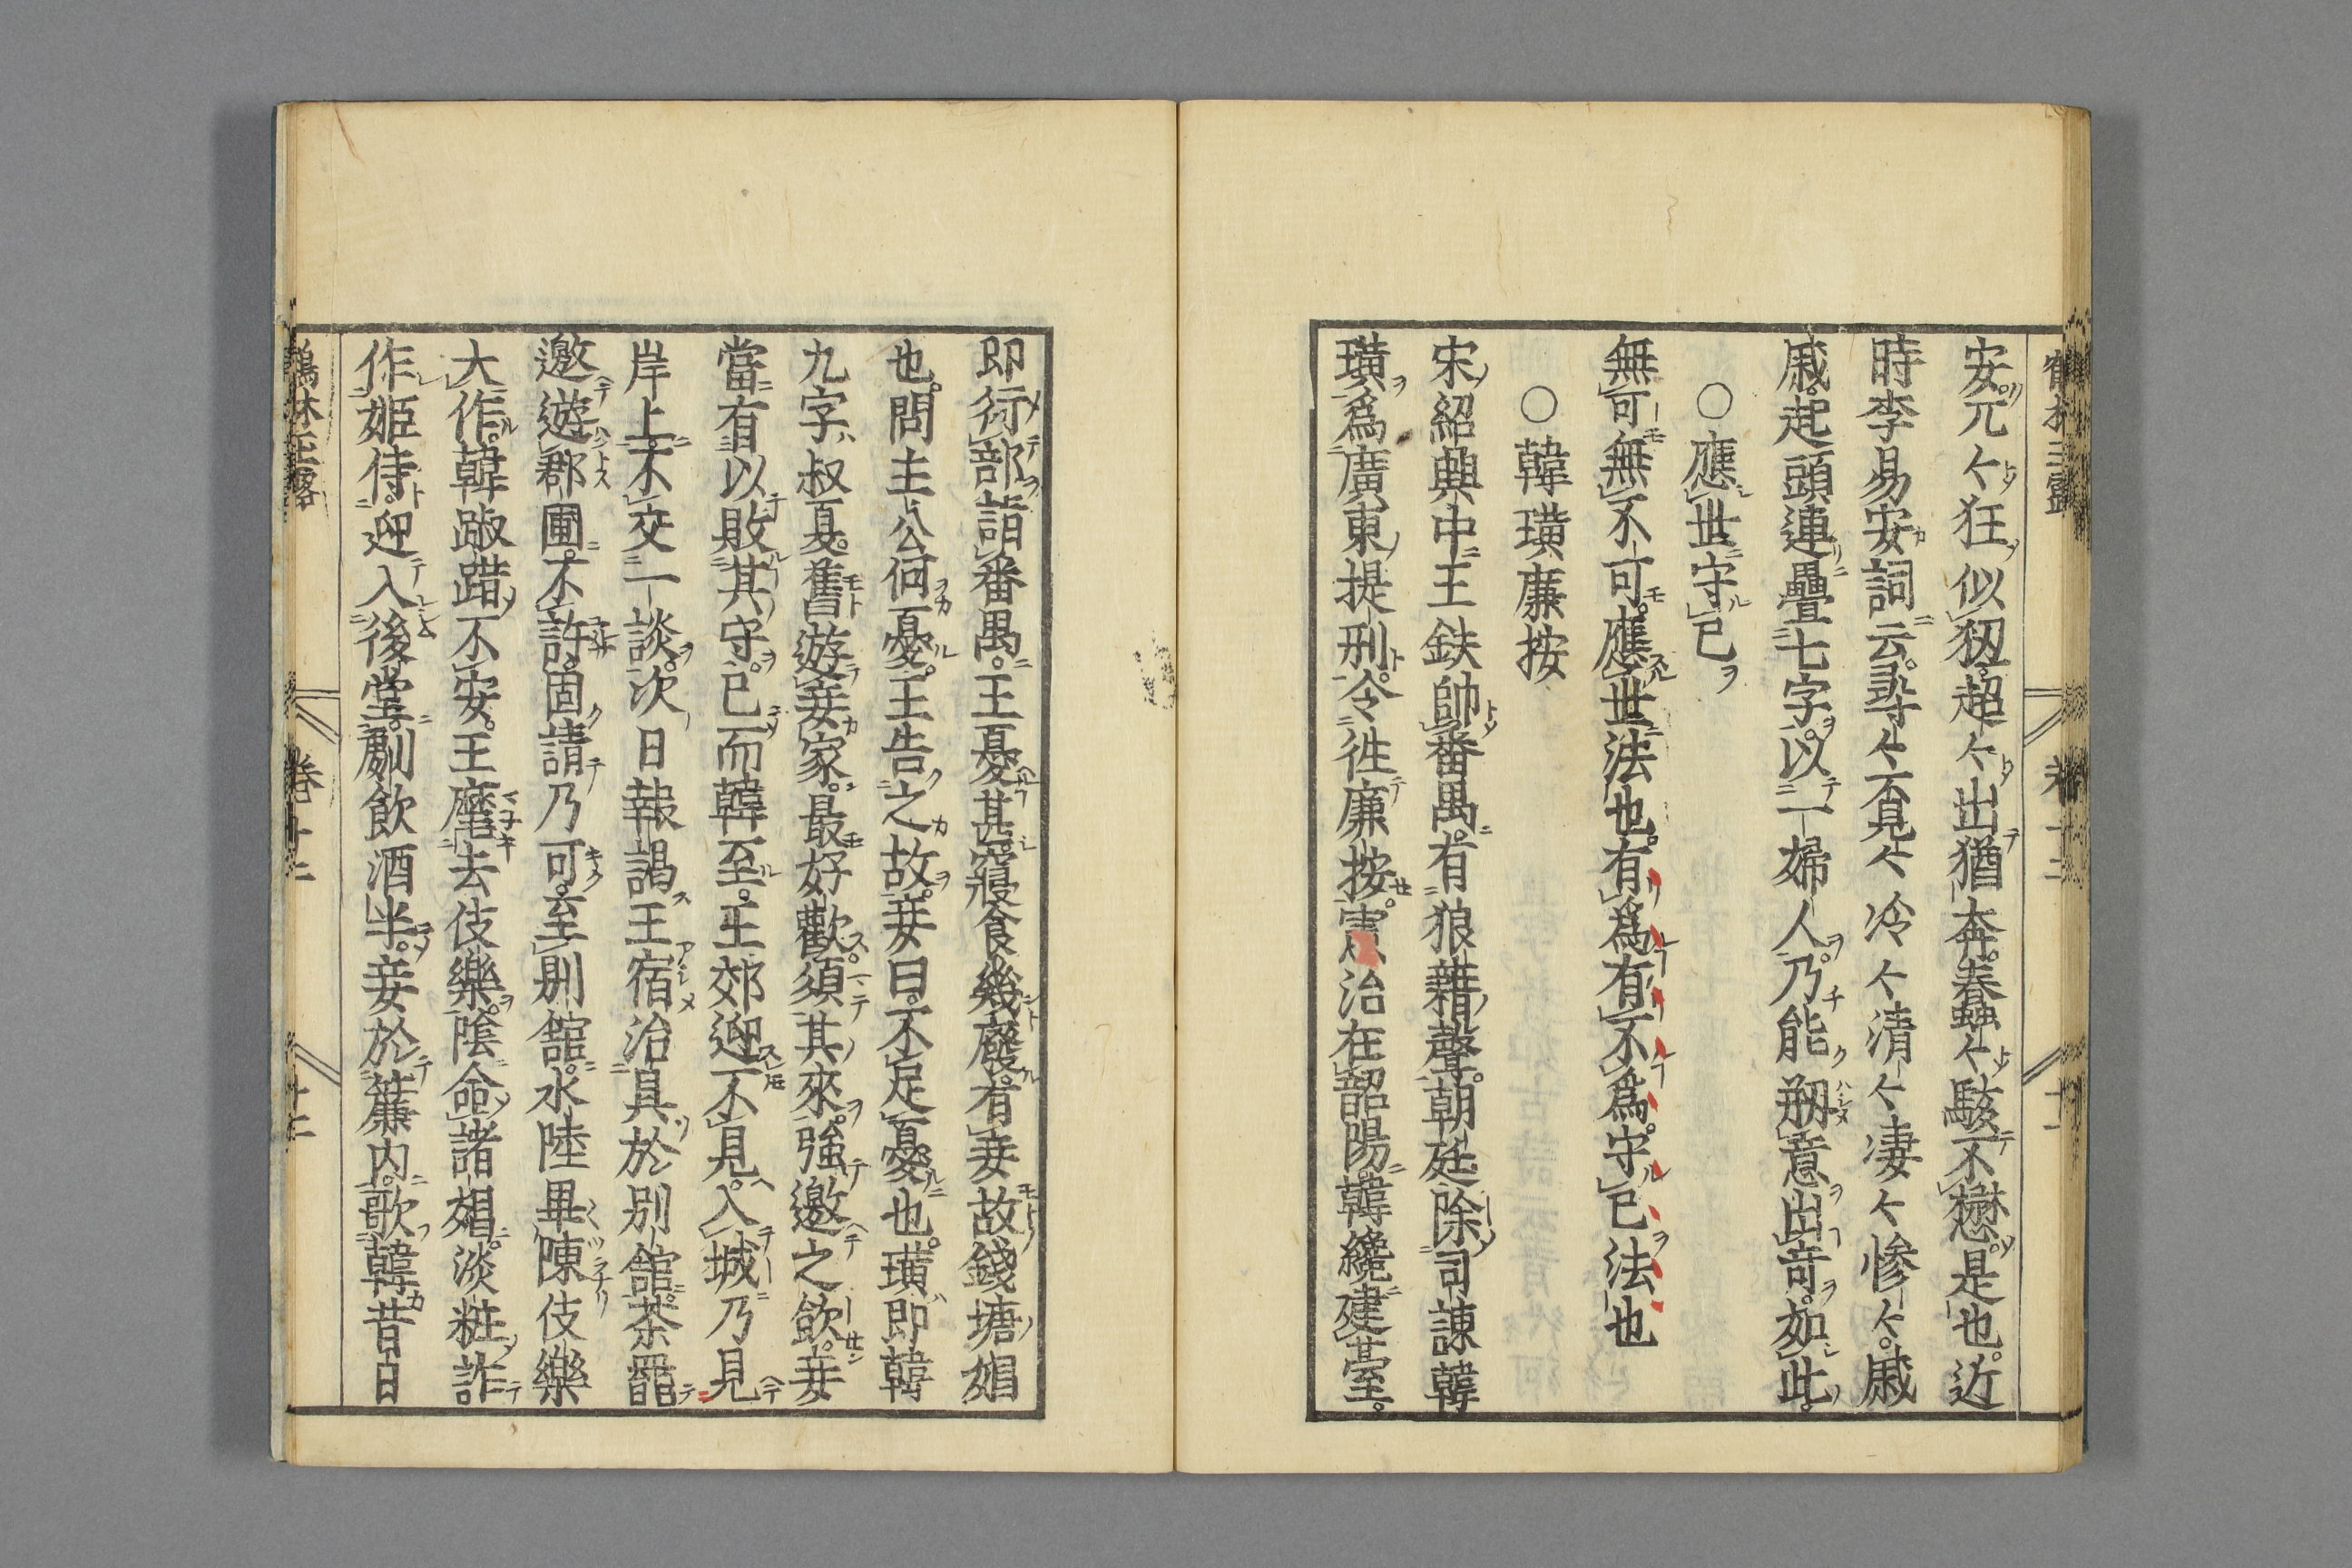 安兀〻狂似刼超〻出猶奔蠢〻駭不懋是也近
時李易安詞云尋〻覓〻冷〻清〻凄〻慘〻戚
戚起頭連疊七字以一婦人乃能剏意出奇如此
○應世守己
無可無不可應世法也有爲有不爲守己法也
○韓璜廉按
宋紹興中王鈇帥番禺有狼藉聲朝廷除司諫韓
璜爲廣東提刑令徃廉按憲治在韶陽韓纔建臺
即行部詣番禺王憂甚寢食幾廢有妾故錢塘娼
也問主公何憂王告之故妾曰不足憂也璜即韓
九字叔夏舊遊妾家最好歡須其來強邀之飲妾
當有以敗其守已而韓至王郊迎不見入城乃見
岸上不交一談次日報謁王宿治具於別館茶罷
邀遊郡圃不許固請乃可至別館水陸畢陳伎樂
大作韓踧踖不安王麾去伎樂陰命諸娼淡粧詐
作姬侍迎入後堂劇飲酒半妾於簾内歌韓昔日
鶴林玉露
卷十二
十二